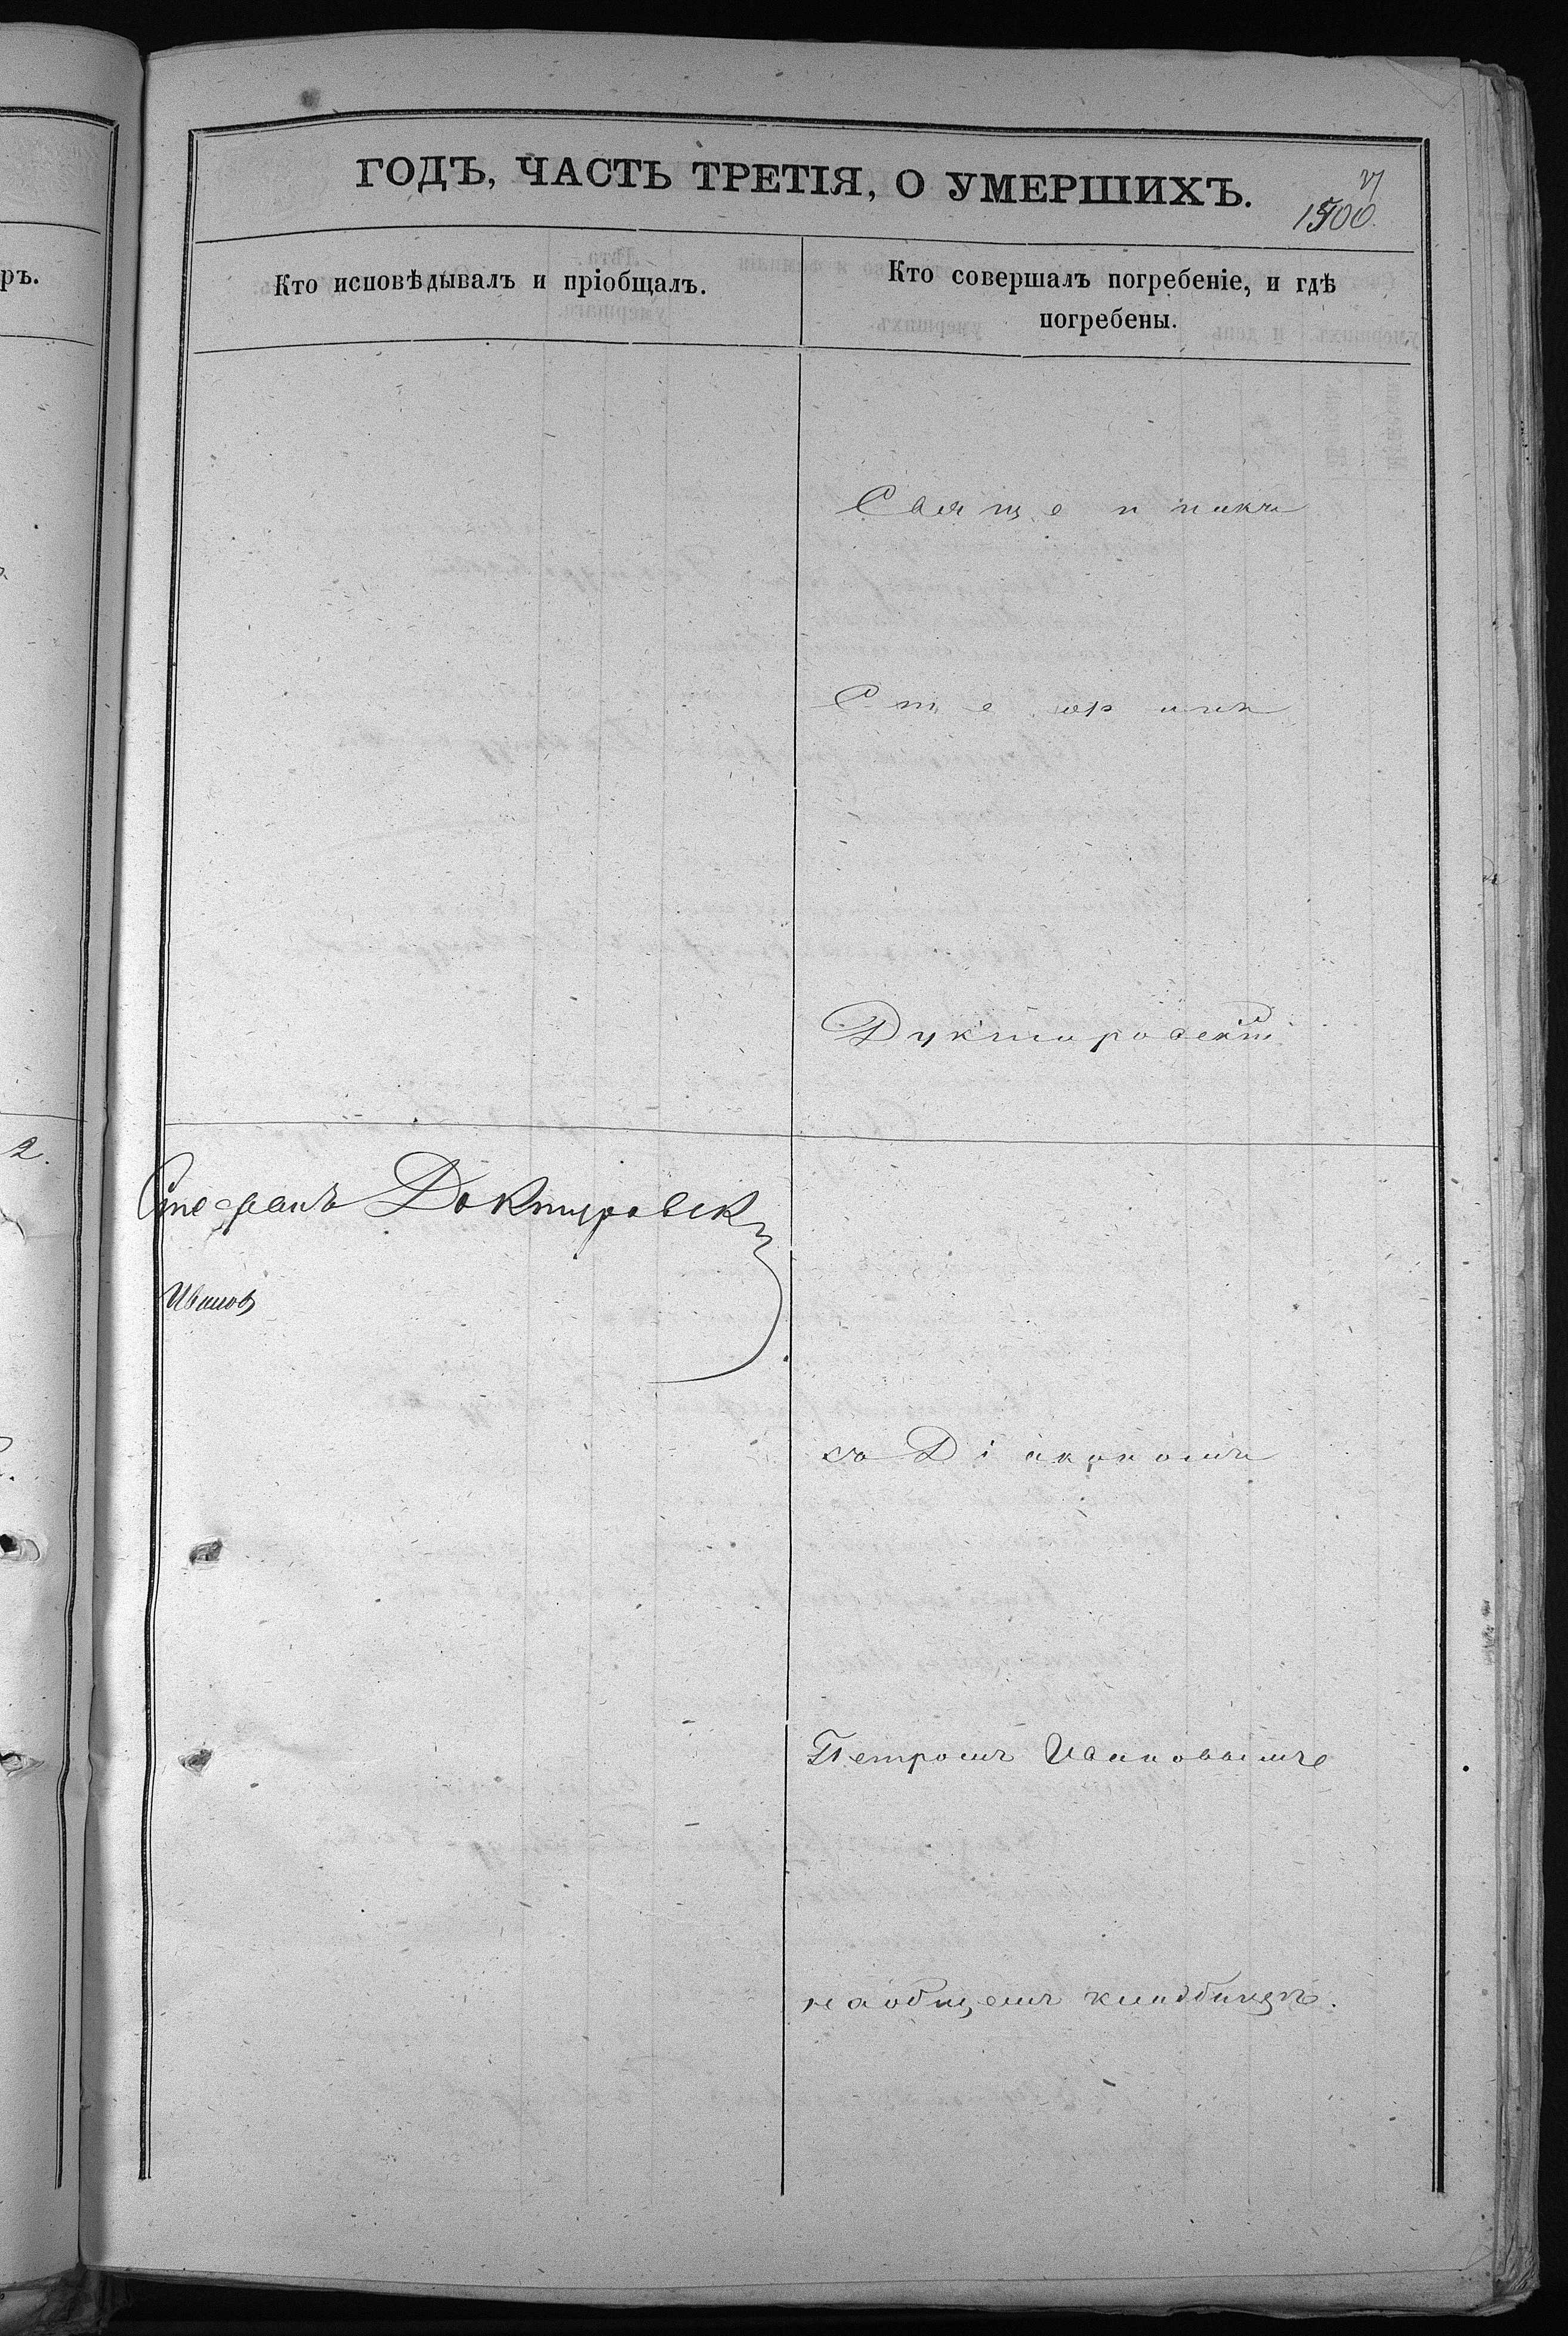 ГОДЪ, ЧАСТЬ ТРЕТІЯ, О УМЕРШИХЪ.
Кто исповѣдывалъ и пріобщалъ.
Кто совершалъ погребеніе, и гдѣ
погребены.
Священникъ
Стефанъ
Доктуровскій
Стефанъ Доктуровск
Иванов
съ Діакономъ
Петромъ Ивановымъ
на общемъ кладбищѣ.
ръ.
2.